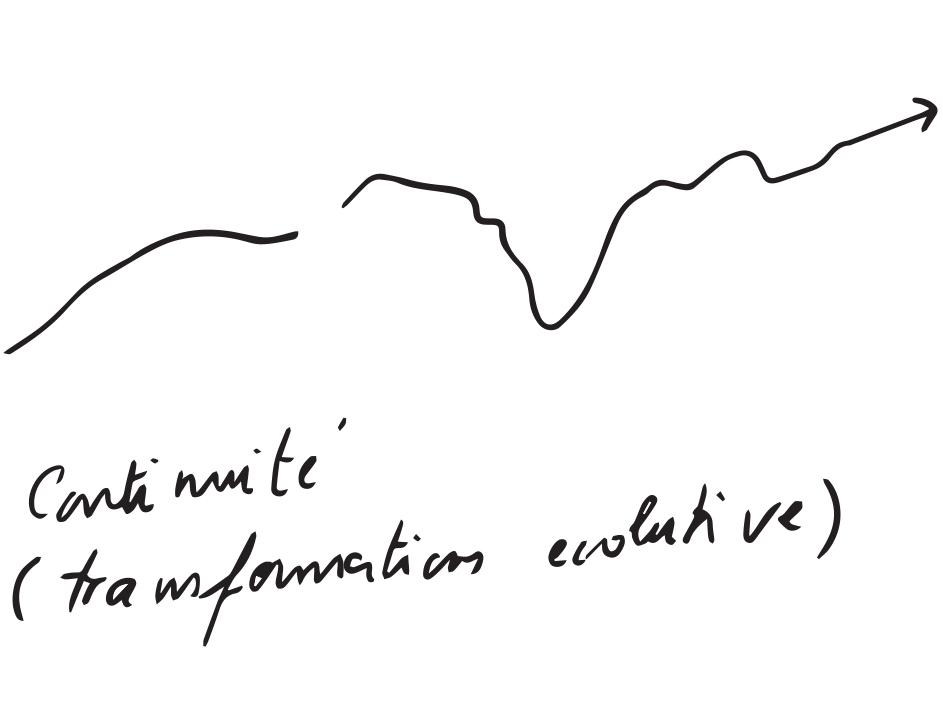 Continuité
(transformation evolutive)